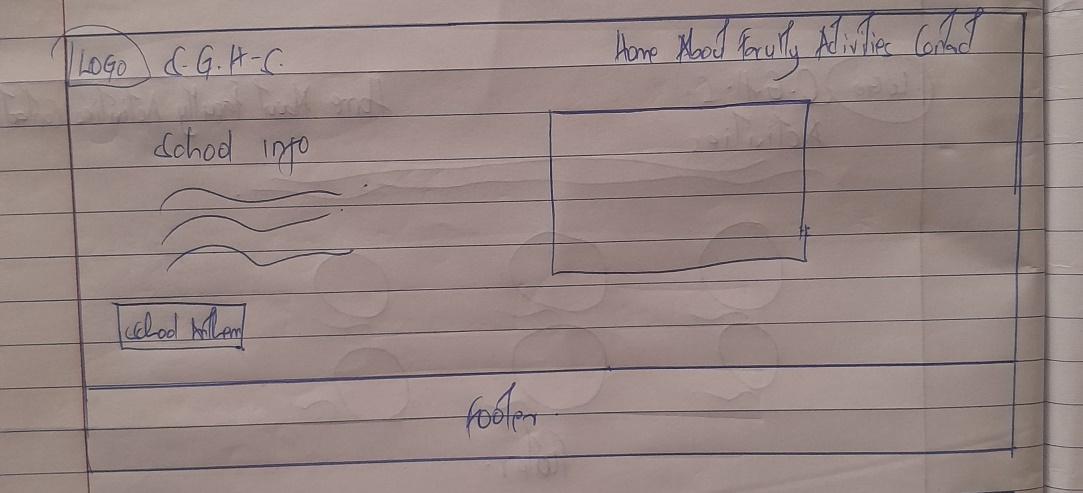 LOGO S.G.H.S. Home About Faculty Activities Contact
School info
School Anthem
Footer